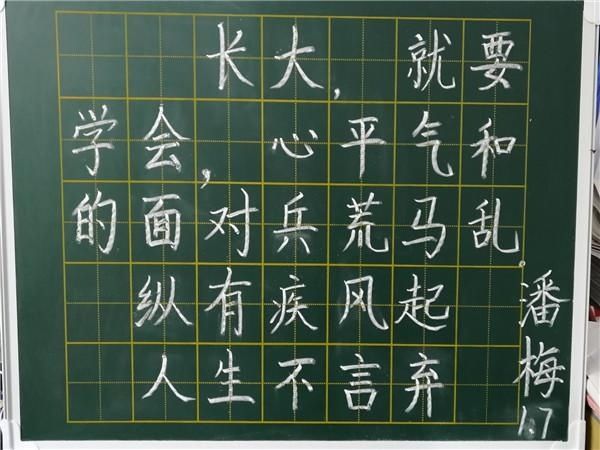 长大，就要
学会，心平气和
的面对兵荒马乱.
纵有疾风起
人生不言弃
潘梅
1.7